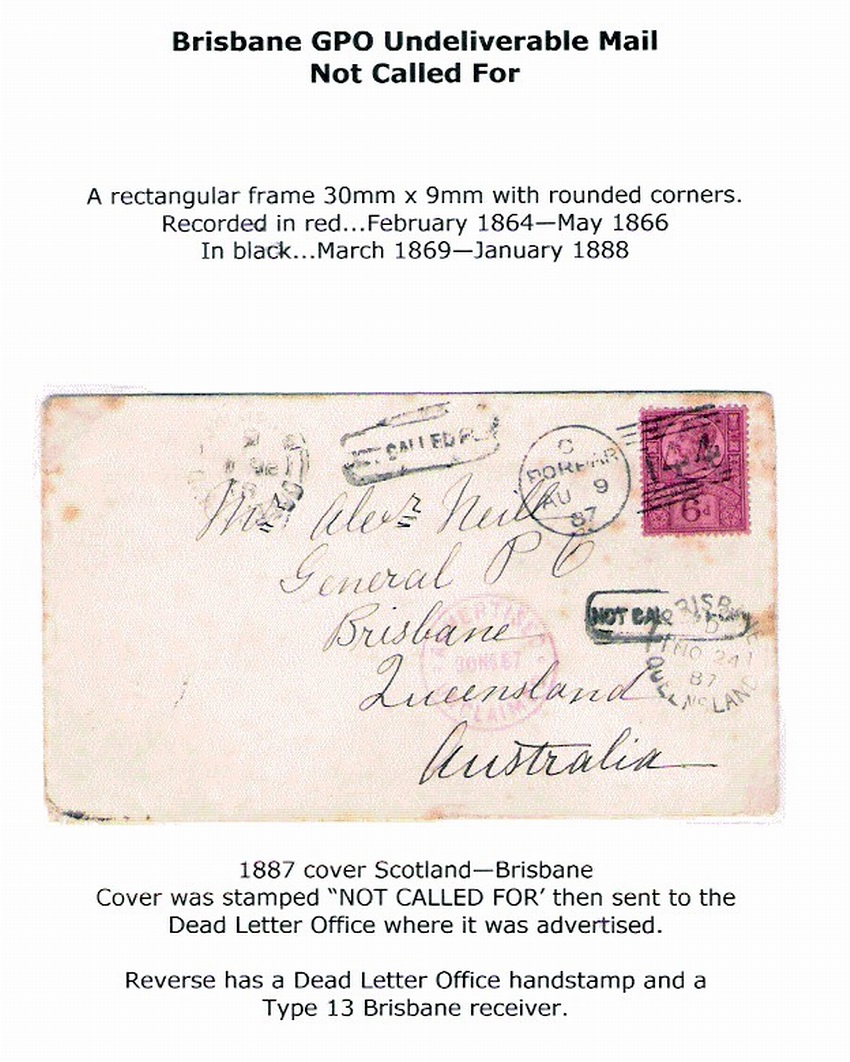 Brisbane GPO Undeliverable Mail
Not Called For
A rectangular frame 30mm x 9mm with rounded corners.
Recorded in red...February 1864—May 1866
In black...March 1869—January 1888
CALLED
C
FORFAR
AU 9
87
6d
Alexr Neill
General P O
NOT
Brisbane
Queensland
87
QUEENSLAND
Australia
1887 cover Scotland—Brisbane
Cover was stamped “NOT CALLED FOR’ then sent to the
Dead Letter Office where it was advertised.
Reverse has a Dead Letter Office handstamp and a
Type 13 Brisbane receiver.